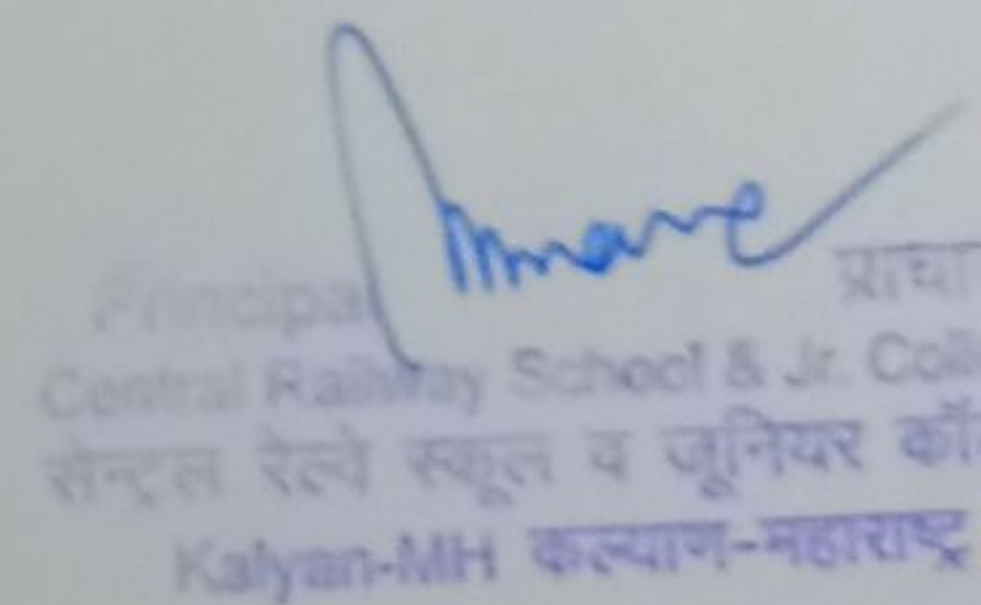 Principal प्राचा
Central Railway School & Jr. Coll
सेन्ट्रल रेल्वे स्कूल व जूनियर कॉ
Kalyan-MH कल्याण-महाराष्ट्र